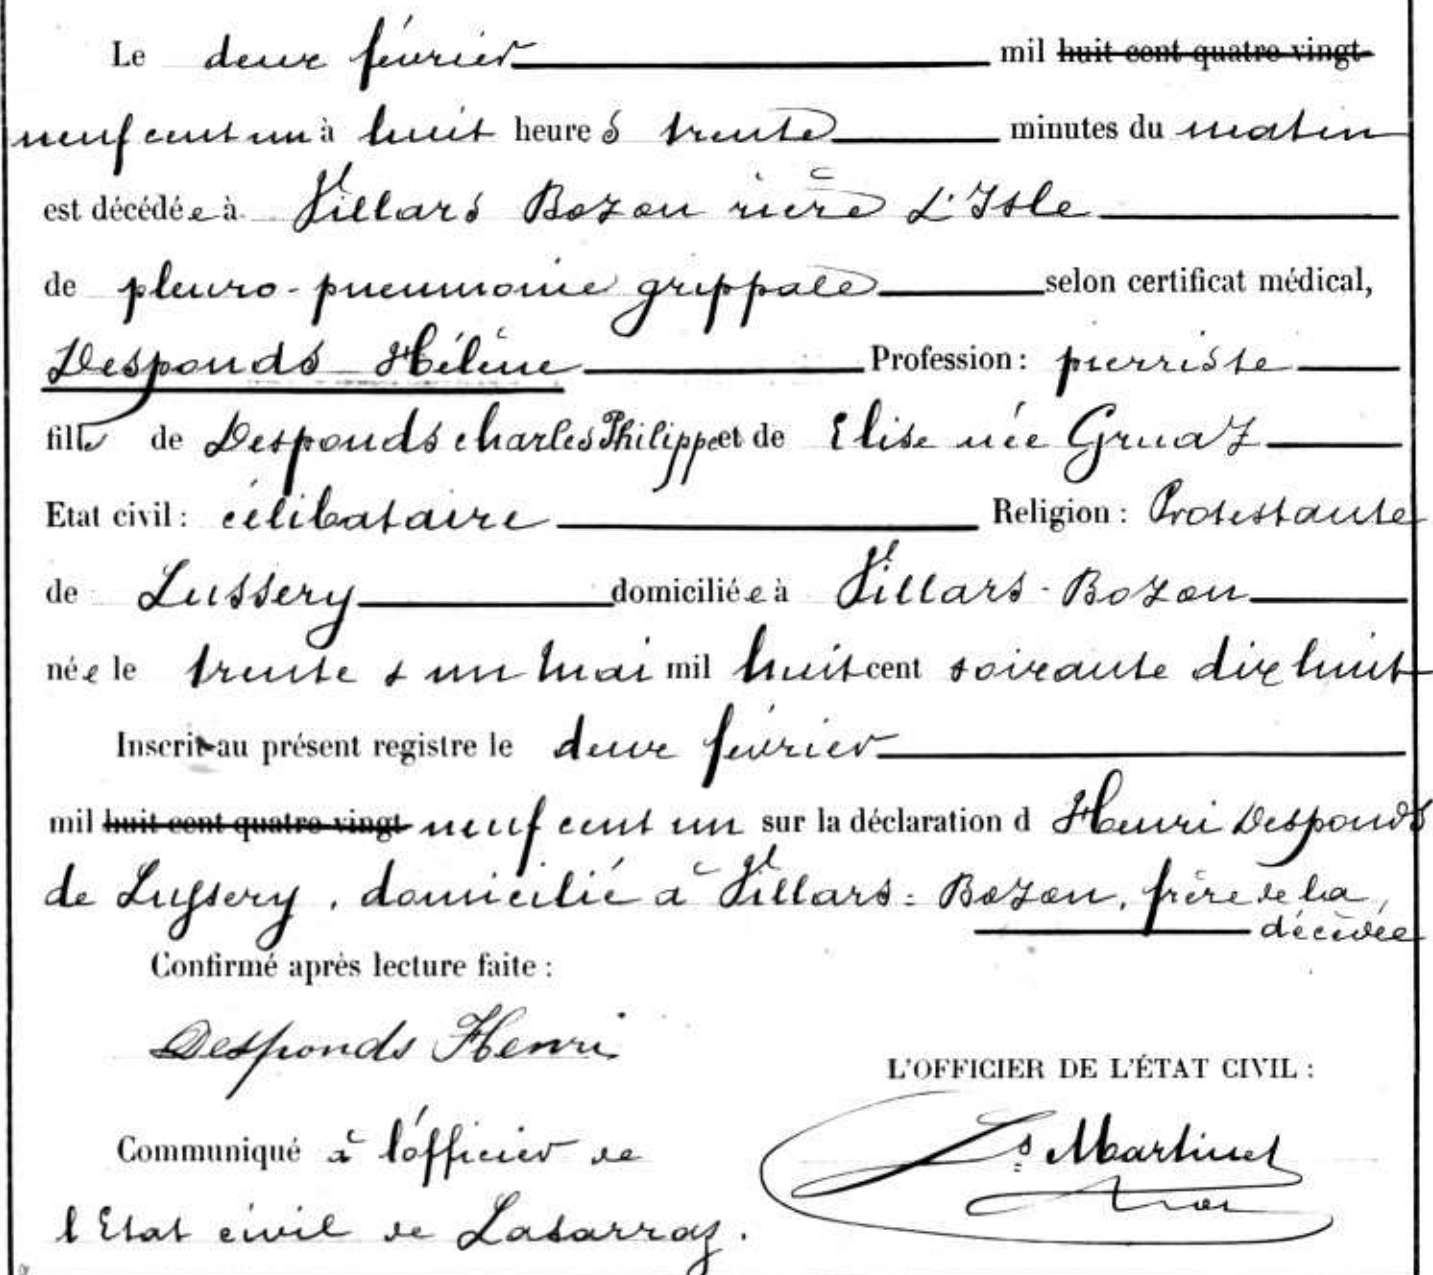 Le deux février mil huit cent quatre vingt
neuf cent un à huit heures trente minutes du matin
est décédée à Villars Bozon rière L'Isle
de pleuro-pneumonie grippale selon certificat médical,
Desponds Hélène Profession: pierriste
fille de Desponds Charles Philippe et de Elise née Gruaz
Etat civil: célibataire Religion: Protestante
de Lussery domiciliée à Villars-Bozon
née le trente & un Mai mil huit cent soixante dix huit
Inscrit au présent registre le deux février
mil huit cent quatre vingt neuf cent un sur la déclaration d Henri Desponds
de Lussery, domicilié à Villars-Bozon, frère de la
décédée
Confirmé après lecture faite:
Desponds Henri
L'OFFICIER DE L'ÉTAT CIVIL:
Communiqué à l'officier de
Ls Martinet
l'Etat civil de Lasarraz.